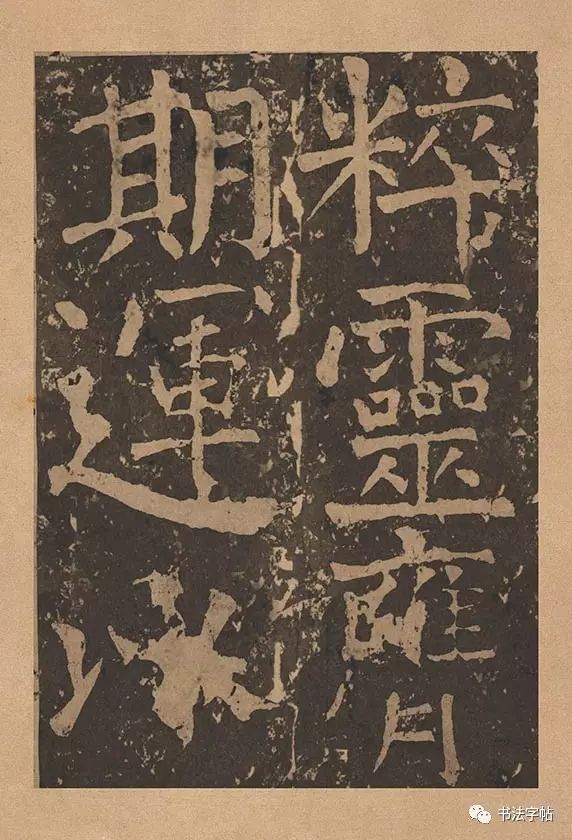 粹靈雍
期運
书法字帖